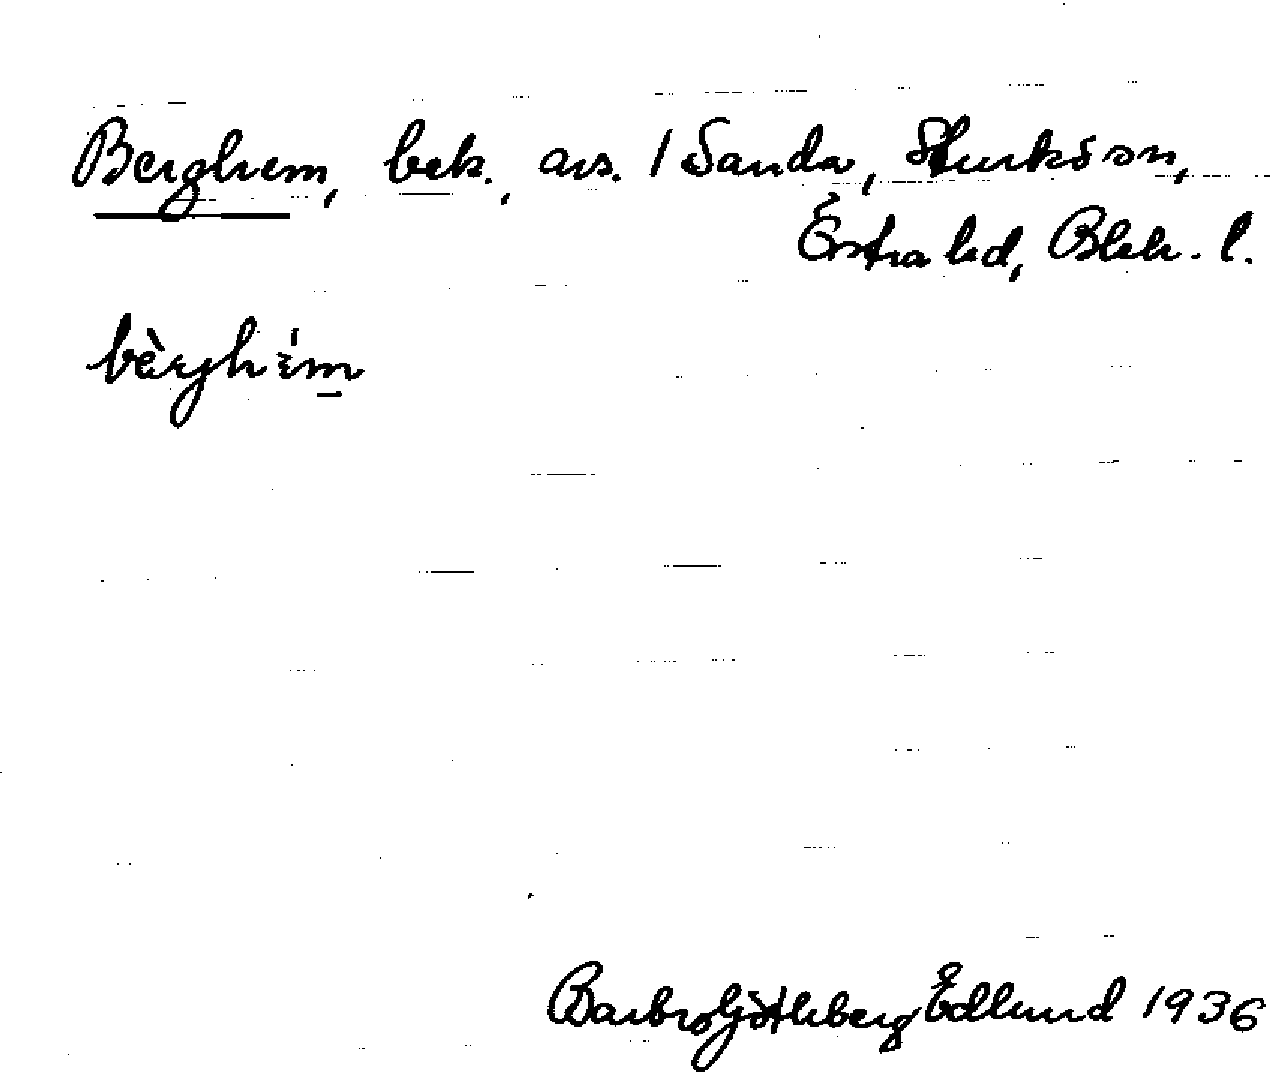 Berghem, bek., avs. / Sanda, Sturkö sn,
Östra hd, Blek. l.
bèrghém
Barbro Götheberg Edlund 1936